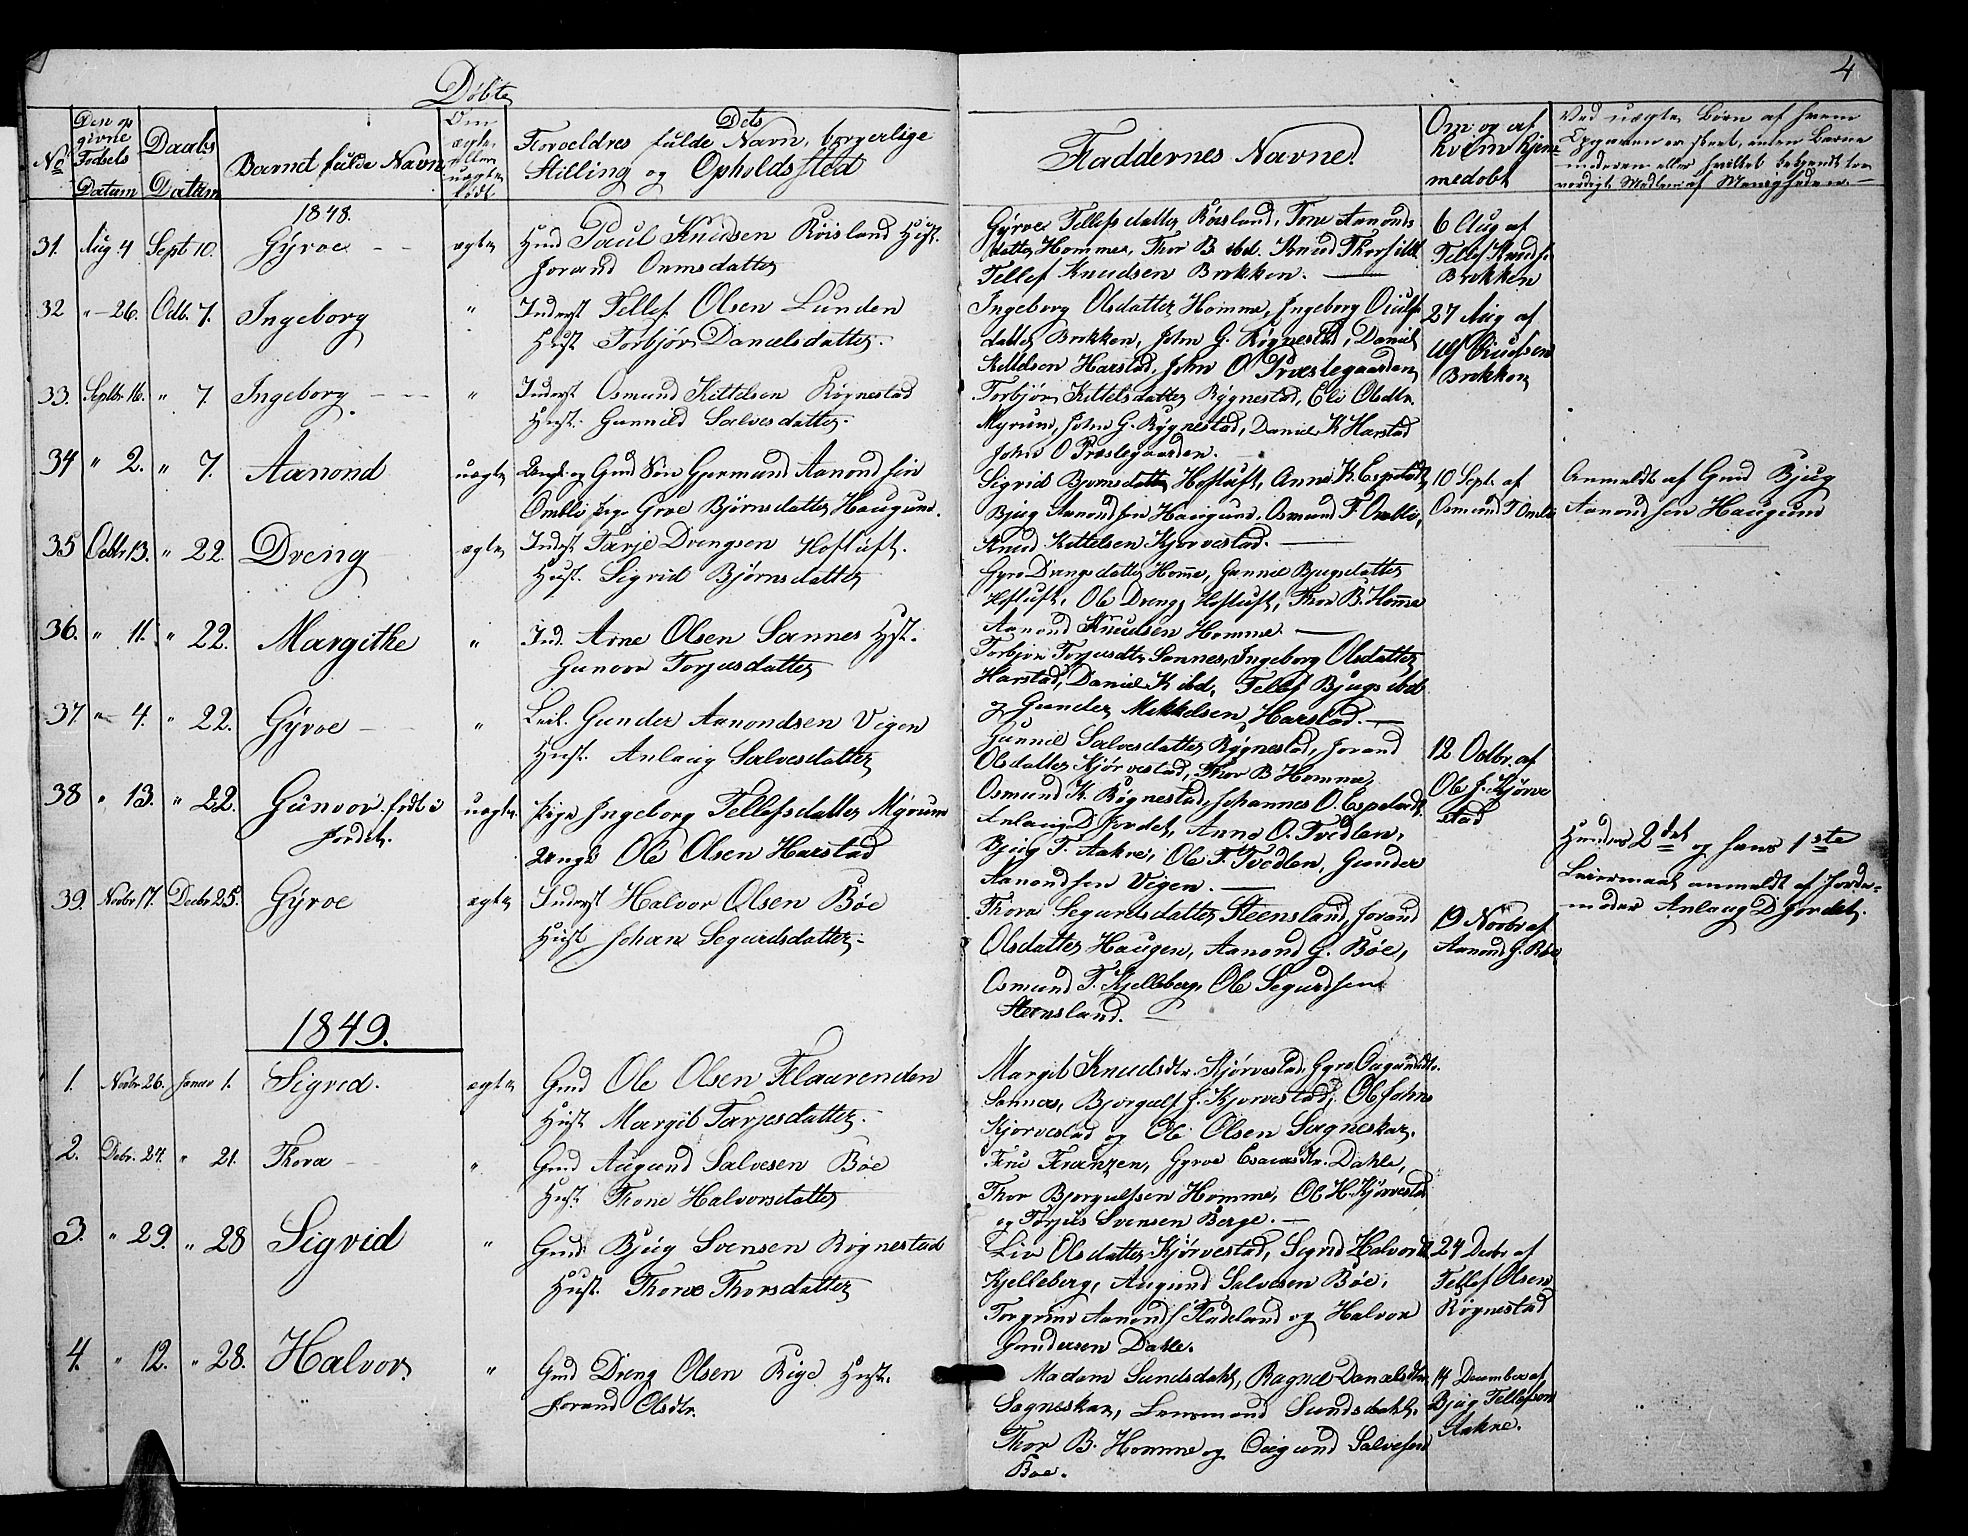 4
Døbte
No
Den op
givne
Fødsels
Datum
Daabs
Datum
Barnets fulde Navn
Om
ægte
eller
uægte
født
Dets
Forældres fulde Navn, borgerlige
Stilling og Opholdssted
Faddernes Navne.
Om og af
hvem hjem
medøbt
Ved uægte Børn af hvem
1848.
31. Aug 4 Sept 10. Gyroe ægte Gmd Paul Knudsen Røisland Hust.
Jorand Onnsdatter
Gyroe Tellefsdatter Røisland, Tone Aanonds
datter Homme, Thor B. ibd. Knud
Tellef Knudsen Brokken.
6 Aug af
Tellef Knuds.
Brokken
32 " 26. Octb. 7. Ingeborg " Inderst Tellef Olsen Lunden
Hust Torbjør Danielsdatter.
Ingeborg Olsdatter Homme, Ingeborg
datter Brokken, John G. Rygnestad, Daniel
Kittelsen Harstad, John O Præstegaarden
27 Aug af
Brokken
33. Septbr 16. " 7 Ingeborg " Inderst Osmund Kittelsen Rygnestad
Hust. Gunnild Salvesdatter.
Torbjør Kittelsdatter Rygnestad, Eli Olsdtr.
Myrum, John G. Rygnestad, Daniel K Harstad
John O Præstegaarden.
34 " 2. " 7. Aanond uægte Ungk. og Gmd Søn Gjermund Aanondsen
Omlie Pige Groe Bjørnsdatter Haugum.
Sigrid Bjørnsdatter Hoftuft, Anne K. Espetad
Bjug Aanondsen Haugum, Osmund T. Omlie,
Knud Kittelsen Kjørvestad.
10 Sept. af
Osmund T Omlie
Anmeldt af Gmd Bjug
Aanondsen Haugum
35 Octbr 13. " 22. Dreng ægte Inderst Tarje Drengsen Hoftuft.
Hust. Sigrid Bjørnsdatter
Gyro Drengsdatter Homme, Gunnil Bjugsdatter
Hoftuft, Ole Dreng, Hoftuft, Thor B. Homme
Aanond Knudsen Homme.
36. " 11. " 22. Margithe " Ind. Arne Olsen Sannes Hst.
Gunvor Torjusdatter
Torbjør Torjusdtr Sannes, Ingeborg Olsdatter
Harstad, Daniel K ibd, Tellef Bjugs ibd
og Gunder Mikkelsen Harstad.
37 " 4. " 22. Gyroe " Leil. Gunder Aanondsen Vigen
Hust. Anlaug Salvesdatter
Gunnil Salvesdatter Rygnestad, Jorand
Olsdatter Kjørvestad, Thor B Homme,
Osmund K. Rygnestad, Johannes O. Espetad
12 Octbr. af
Ole J. Kjørve
stad
38 " 13. " 22. Gunvor. født i
Jordet.
uægte Pige Ingeborg Tellefsdatter Myrum
Ungk Ole Olsen Harstad
Anlaug D Jordet, Anne O. Tvedten,
Bjug T. Aakre, Ole T. Tvedten, Gunder
Aanondsen Vigen.
Hendes 2det og hans 1ste
Leiermaal anmeldt af Jorde-
moder Anlaug D Jordet.
39. Novbr 17. Decbr 25. Gyroe ægte Inderst Halvor Olsen Bøe
Hust Johan Segurdsdatter
Thora Segurdsdatter Steensland, Jorand
Olsdatter Haugen, Aanond G. Bøe,
Osmund T. Kjelleberg, Ole Segurdsen
Steensland.
19 Novbr af
Aanond G. Bøe
1849.
1. Novbr 26. Januar 1. Sigrid. ægte Gmd Ole Olsen Flaarenden
Hust Margit Tarjesdatter.
Margit Knudsdtr. Kjørvestad, Gyro
Sannes, Bjørgulf J. Kjørvestad, Ole Johns
Kjørvestad og Ole Olsen Sagneskar.
2. Decbr. 27. " 21. Thora " Gmd Augund Salvesen Bøe
Hust. Thone Halvorsdatter
Fru Franzen, Gyroe Esaiasdtr. Dahle,
Thor Bjørgulfsen Homme, Ole H. Kjørvestad
og Torjus Svensen Berge.
3. " 29. " 28 Sigrid " Gmd. Bjug Svensen Rygnestad
Hust. Thone Thorsdatter
Liv Olsdatter Kjørvestad, Sigrid Halvorsd
Kjelleberg, Augund Salvesen Bøe,
Torgrim Aanonds. Fladeland og Halvor
Gundersen Dahle.
24 Decbr af
Tellef Olsen
Rygnestad
4. " 12. " 28. Halvor " Gmd Dreng Olsen Rige Hust.
Jorand Olsdtr.
Madam Sundsdahl, Ragne Danielsdtr
Sagneskar, Lensmand Sundsdahl,
Thor B. Homme og Augund Salvesen
Bøe.
14 December af
Bjug Tellefsen
Aakre.